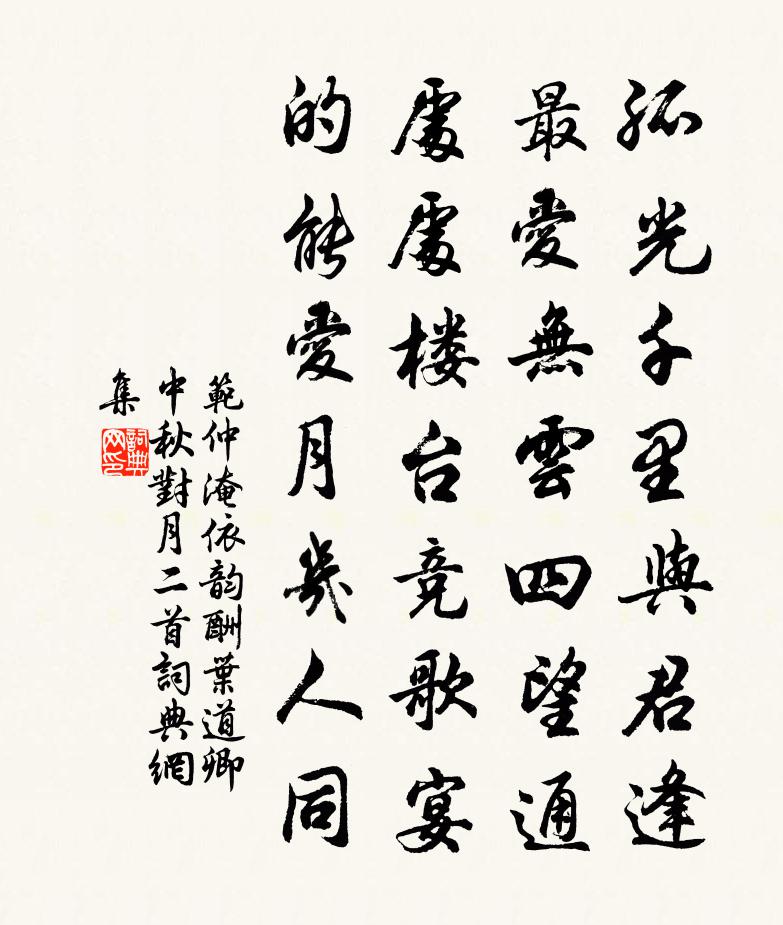 孤光千里與君逢
最愛無雲四望通
處處楼台竞歌宴
的能愛月幾人同
範仲淹依韵酬葉道卿
中秋對月二首詞典網
集
詞典网印